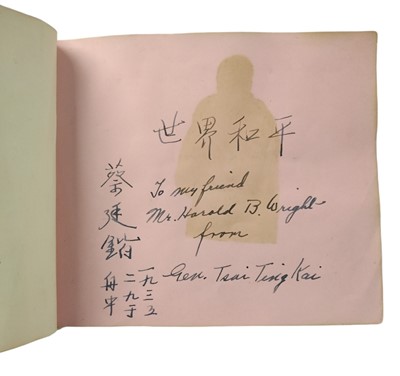 世界和平
To my friend
Mr. Harold B. Wright
from
Gen. Tsai Ting Kai
蔡廷鍇
一九三五
二九于
舟中